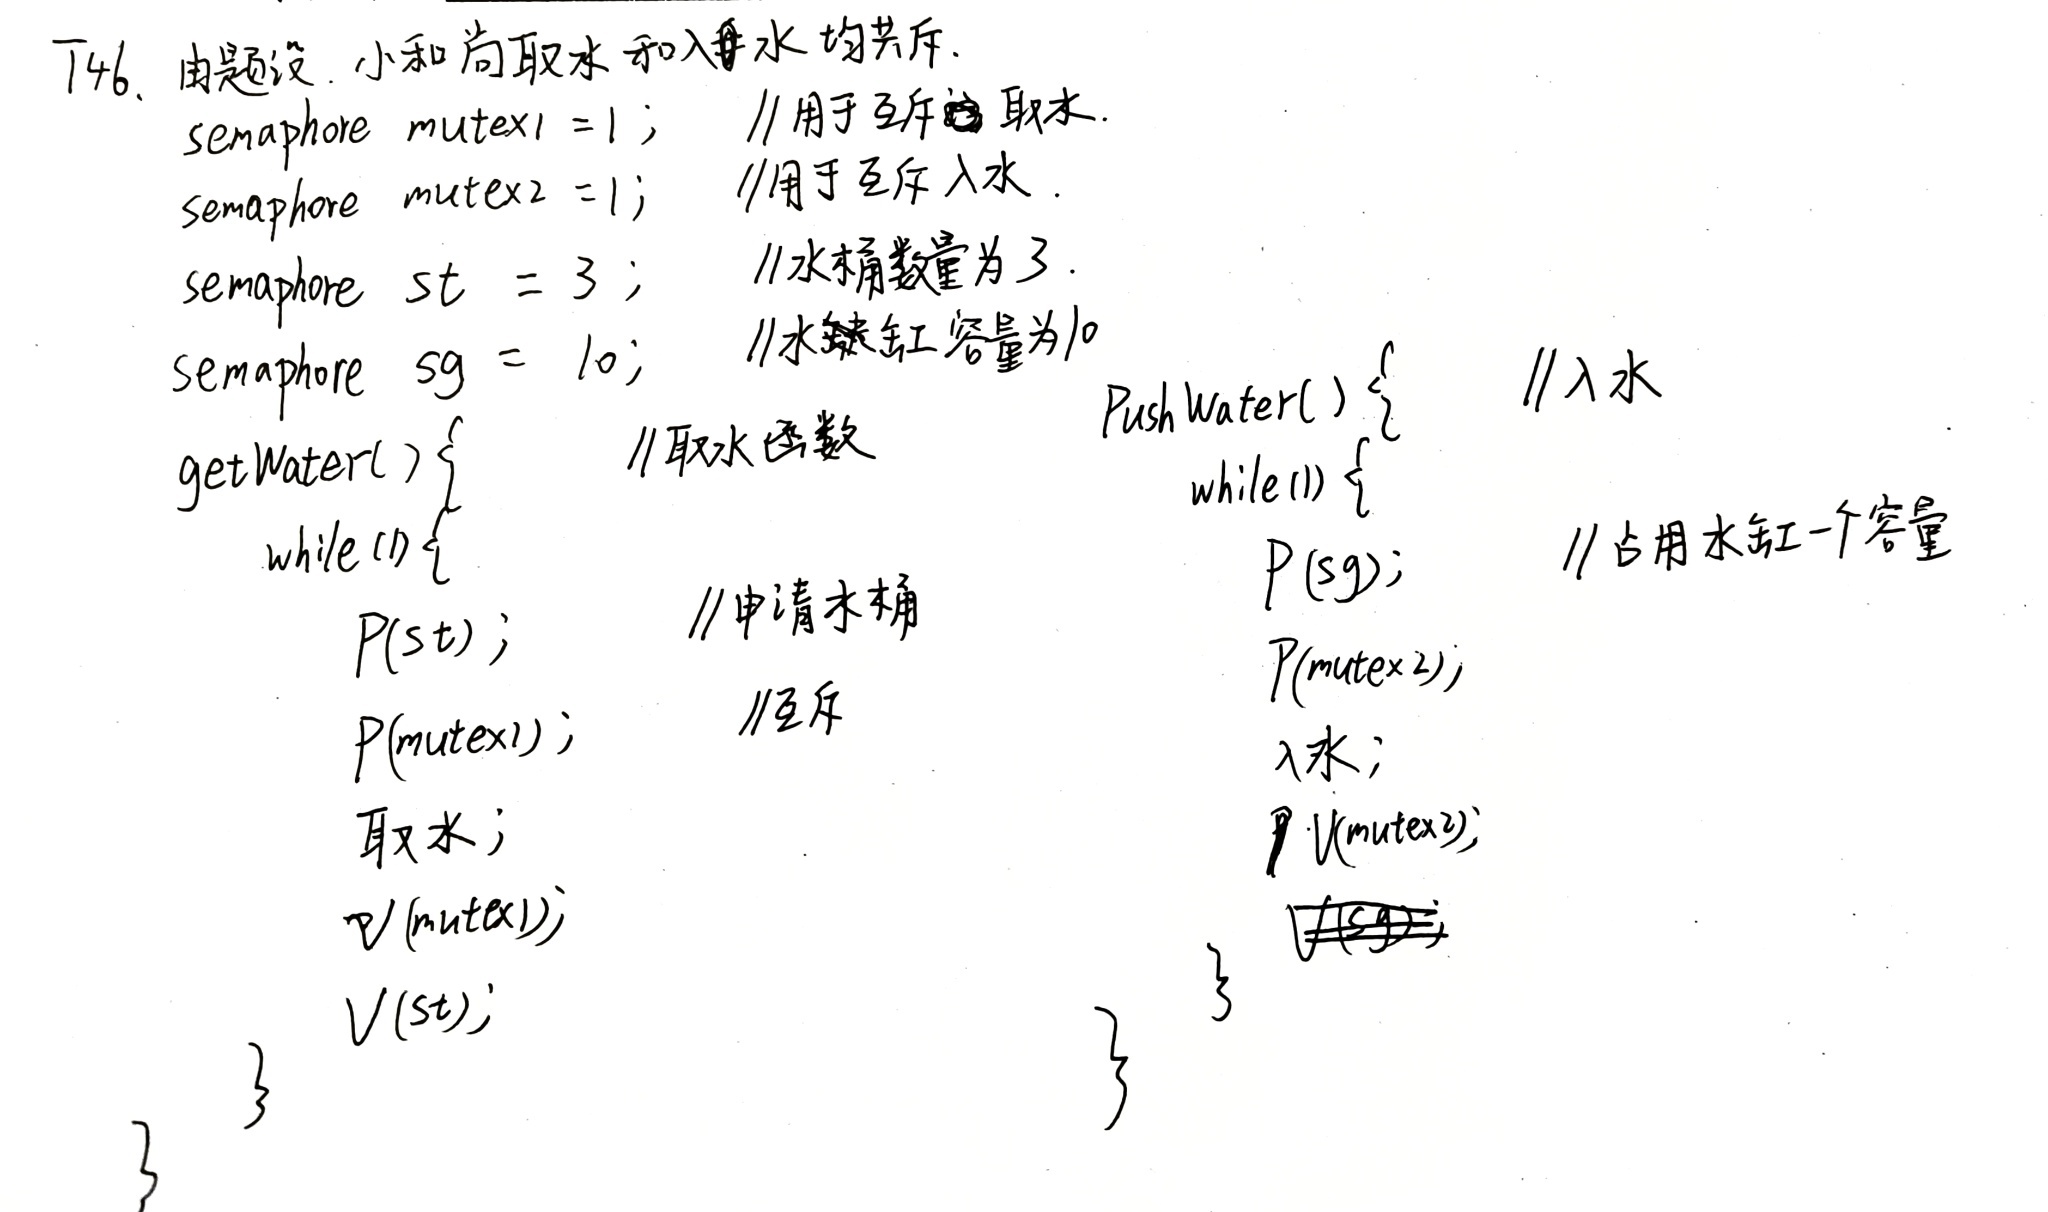 T46. 由题设. 小和尚取水和入水均共斥.
semaphore mutex1 = 1; //用于互斥取水.
semaphore mutex2 = 1; //用于互斥入水.
semaphore st = 3; //水桶数量为3.
semaphore sg = 10; //水缸容量为10
getWater(){ //取水函数
while(1){
P(st); //申请水桶
P(mutex1); //互斥
取水;
V(mutex1);
V(st);
}
}
PushWater(){ //入水
while(1){
P(sg); //占用水缸一个容量
P(mutex2);
入水;
V(mutex2);
}
}